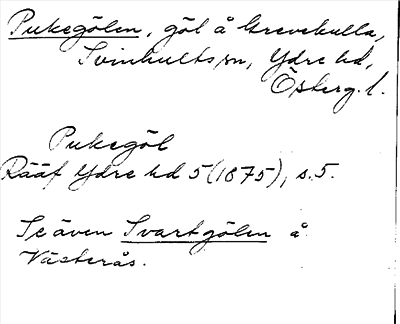 Pukegölen, göl å Grevekulla,
Svinhults sn, Ydre hd,
Österg. l.
Pukegöl
Rääf Ydre hd 5 (1875), s. 5.
Se även Svartgölen å
Västerås.